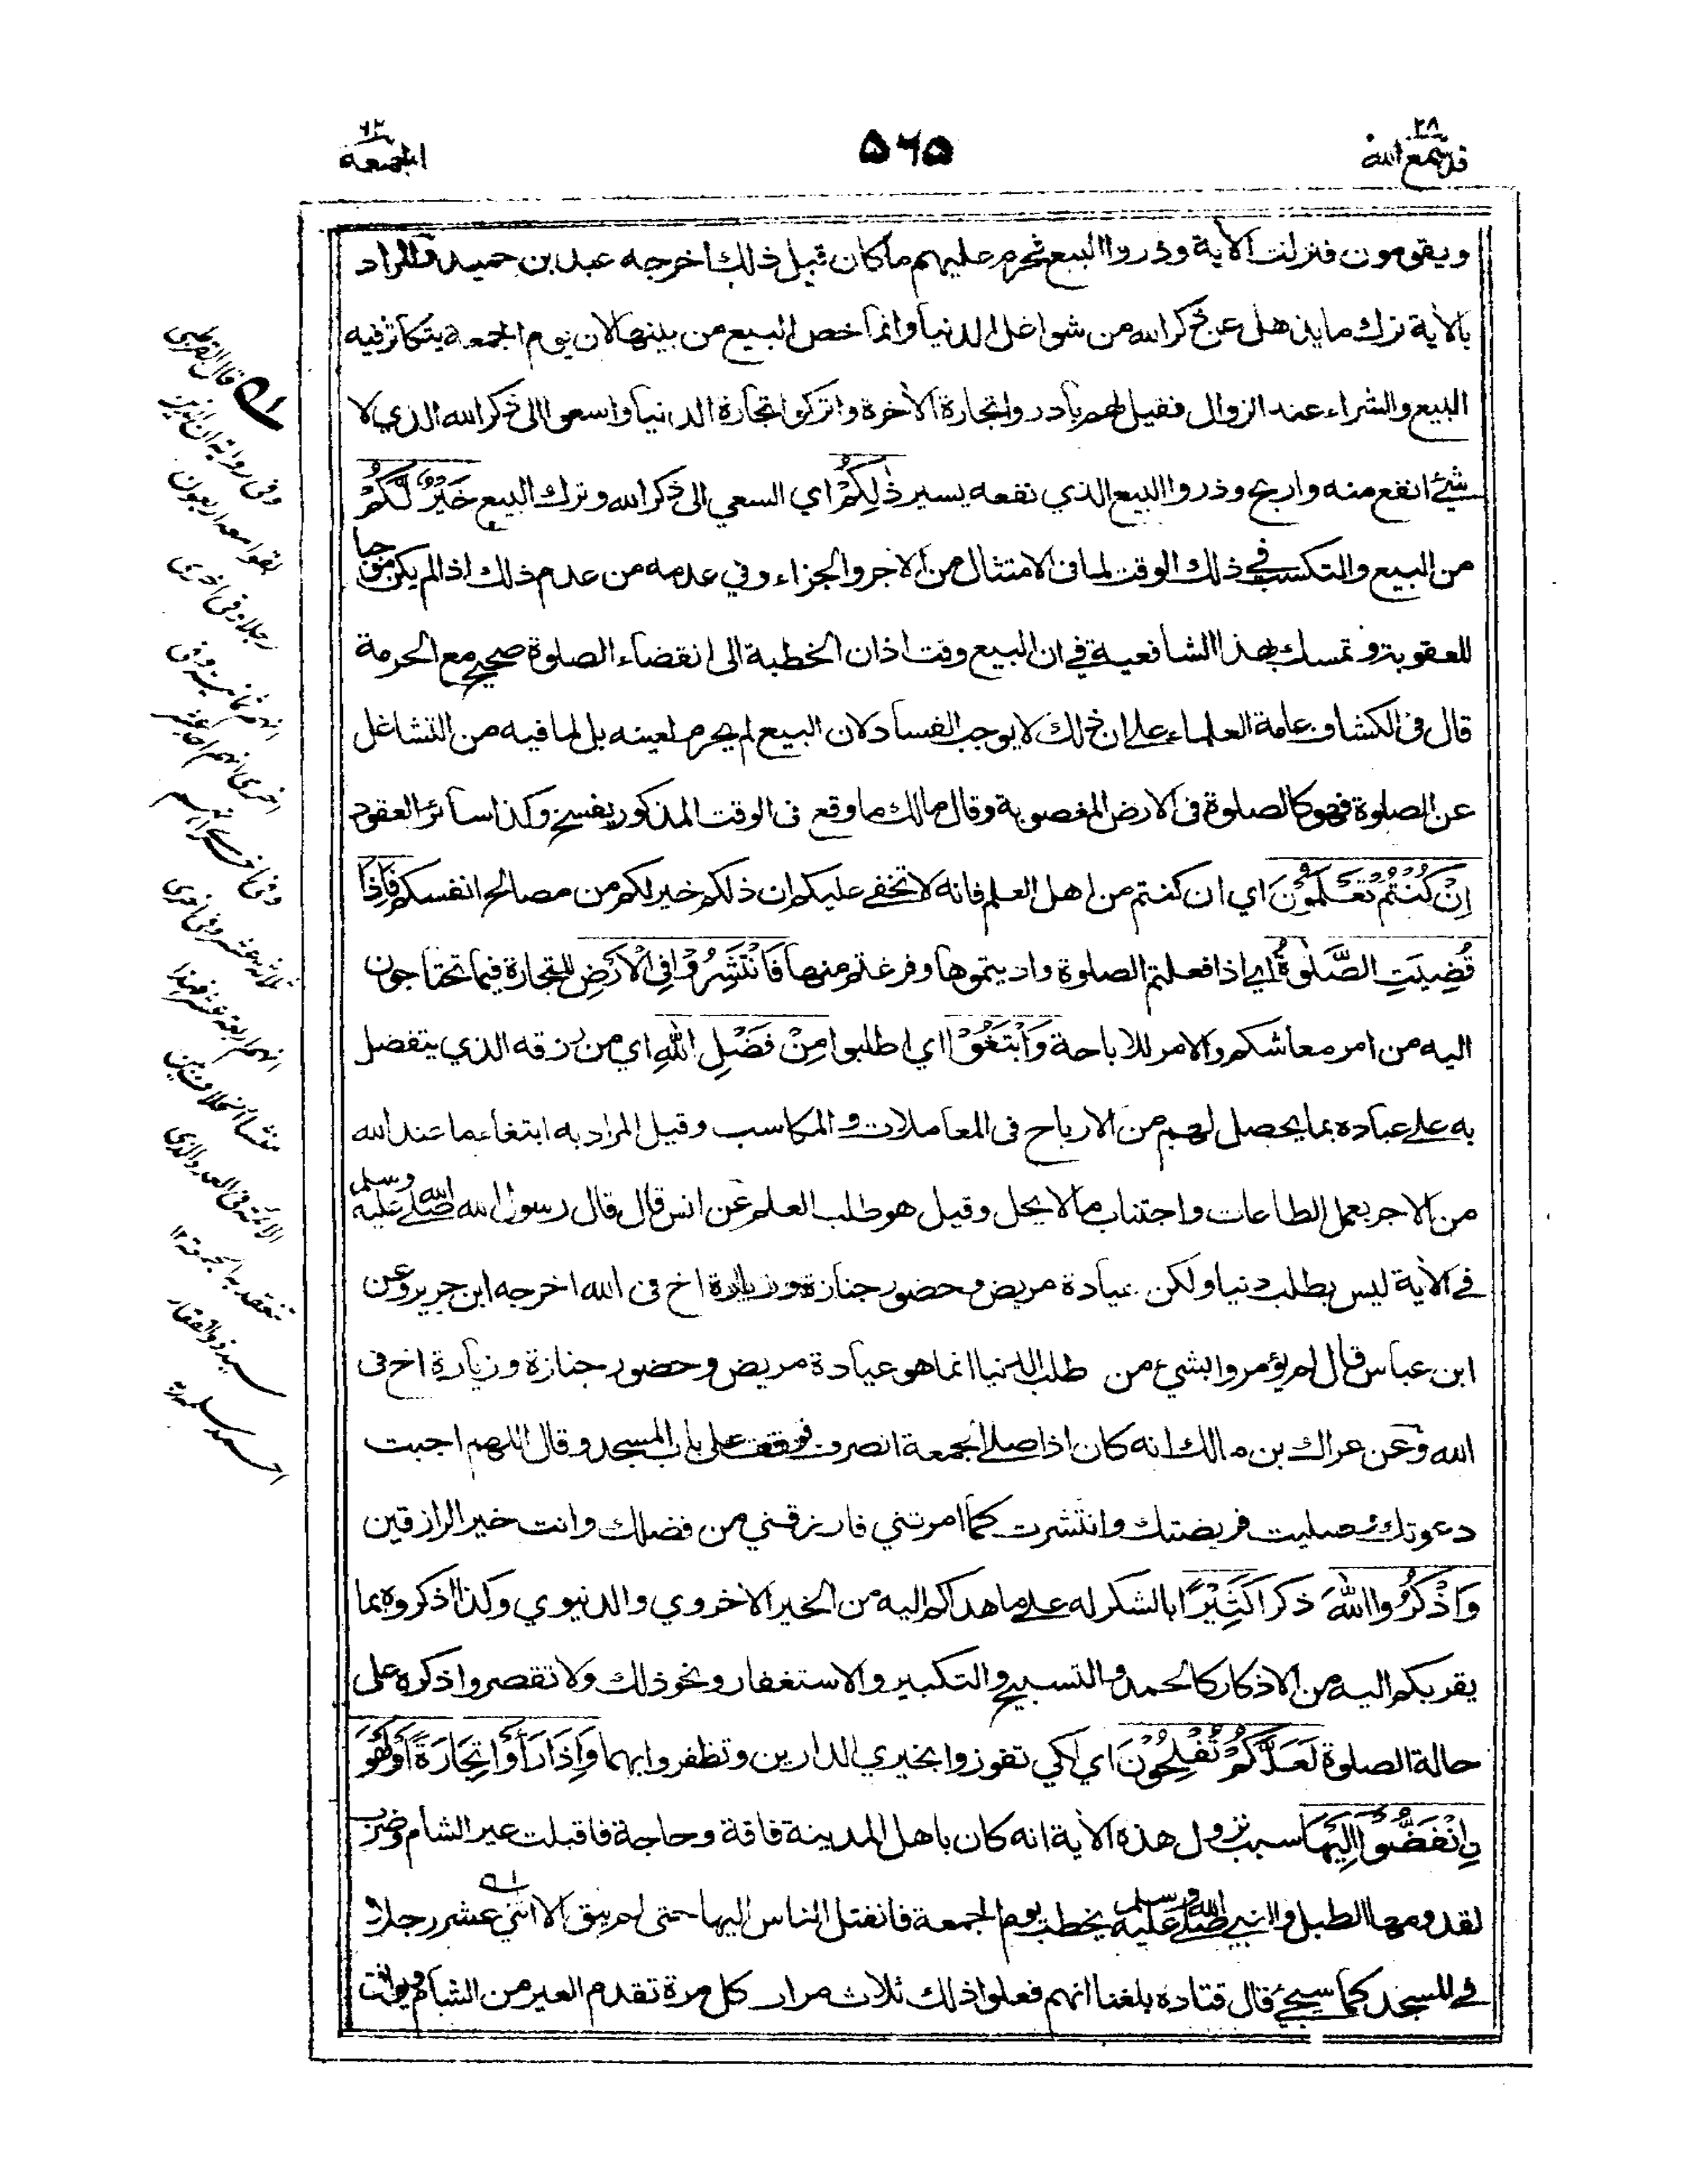 قد سمع الله ٢٨
٥٦٥
الجمعة ٦٢
ويقومون فنزلت الآية وذروا البيع فحرم عليهم ما كان قبل ذلك اخرجه عبد بن حميد والمراد
بالآية ترك ما يذهل عن ذكر الله من شواغل الدنيا وانما خص البيع من بينها لان يوم الجمعة يتكاثر فيه
البيع والشراء عند الزوال فقيل لهم بادروا تجارة الآخرة واتركوا تجارة الدنيا واسعوا الى ذكر الله الذي لا
شئ انفع منه واربح وذروا البيع الذي نفعه يسير ذٰلِكُمْ اي السعي الى ذكر الله وترك البيع خَيْرٌ لَّكُمْ
من البيع والتكسب في ذلك الوقت لما في الامتثال من الاجر والجزاء وفي عدمه من عدم ذلك اذا لم يكن موجبا
للعقوبة وتمسك بهذا الشافعية في ان البيع وقت اذان الخطبة الى انقضاء الصلوة صحيح مع الحرمة
قال في الكشاف عامة العلماء على ان ذلك لا يوجب الفساد لان البيع لم يحرم لعينه بل لما فيه من التشاغل
عن الصلوة فهو كالصلوة في الارض المغصوبة وقال مالك ما وقع في الوقت المذكور يفسخ وكذا سائر العقود
اِنْ كُنْتُمْ تَعْلَمُوْنَ اي ان كنتم من اهل العلم فانه لا تخفى عليكم ان ذلكم خير لكم من مصالح انفسكم فَاِذَا
قُضِيَتِ الصَّلٰوةُ اي اذا فعلتم الصلوة واديتموها وفرغتم منها فَانْتَشِرُوْا فِي الْاَرْضِ للتجارة فيما تحتاجون
اليه من امر معاشكم والامر للاباحة وَابْتَغُوْا اي اطلبوا مِنْ فَضْلِ اللّٰهِ اي من رزقه الذي يتفضل
به على عباده بما يحصل لهم من الارباح في المعاملات و المكاسب وقيل المراد به ابتغاء ما عند الله
من الاجر بعمل الطاعات واجتناب ما لا يحل وقيل هو طلب العلم عن انس قال قال رسول الله صلى الله عليه وسلم
في الآية ليس بطلب دنيا ولكن عيادة مريض وحضور جنازة وزيارة اخ في الله اخرجه ابن جرير وعن
ابن عباس قال لم يؤمروا بشيء من طلب الدنيا انما هو عيادة مريض وحضور جنازة وزيارة اخ في
الله وعن عراك بن مالك انه كان اذا صلى الجمعة انصرف فوقف على باب المسجد وقال اللهم اجبت
دعوتك وصليت فريضتك وانتشرت كما امرتني فارزقني من فضلك وانت خير الرازقين
وَاذْكُرُوا اللّٰهَ ذكرا كَثِيْرًا بالشكر له على ما هداكم اليه من الخير الاخروي والدنيوي وكذا اذكروه بما
يقربكم اليه من الاذكار كالحمد والتسبيح والتكبير والاستغفار ونحو ذلك ولا تقصروا ذكره على
حالة الصلوة لَعَلَّكُمْ تُفْلِحُوْنَ اي كي تفوزوا بخيري الدارين وتظفروا بهما وَاِذَا رَأَوْا تِجَارَةً اَوْ لَهْوَ
نِ انْفَضُّوْا اِلَيْهَا سبب نزول هذه الآية انه كان باهل المدينة فاقة وحاجة فاقبلت عير الشام وضرب
لقدومها الطبل والنبي صلى الله عليه وسلم يخطب يوم الجمعة فانفتل الناس اليها حتى لم يبق الا اثنى عشر رجلا
في المسجد كما سيجئ قال قتادة بلغنا انهم فعلوا ذلك ثلاث مرار كل مرة تقدم العير من الشام ويوافق
قال القرطبي
وفي رواية ان الذين
بقوا معه اربعون
رجلا وفي اخرى
انهم ثمانية وفي
اخرى انهم احد عشر
وفي اخرى انهم
ثلاثة عشر وفي اخرى
انهم اربعة عشر فهذا
منشأ الخلاف بين
الائمة في العدد الذي
تنعقد به الجمعة ١٢
سيد ذو الفقار
احمد سلمه ربه